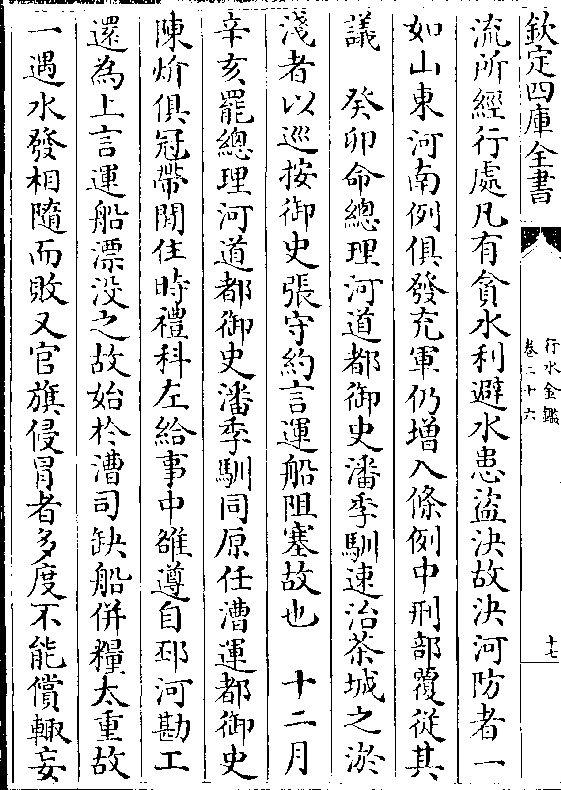 欽定四庫全書
行水金鑑
卷二十六
十七
流所經行處凡有貪水利避水患盜決故決河防者一
如山東河南例俱發充軍仍增入條例中刑部覆從其
議　癸卯命總理河道都御史潘季馴速治茶城之淤
淺者以巡按御史張守約言運船阻塞故也　十二月
辛亥罷總理河道都御史潘季馴同原任漕運都御史
陳炌俱冠帶閒住時禮科左給事中雒遵自邳河勘工
還為上言運船漂没之故始於漕司缺船併糧太重故
一遇水發相隨而敗又官旗侵冒者多度不能償輙妄